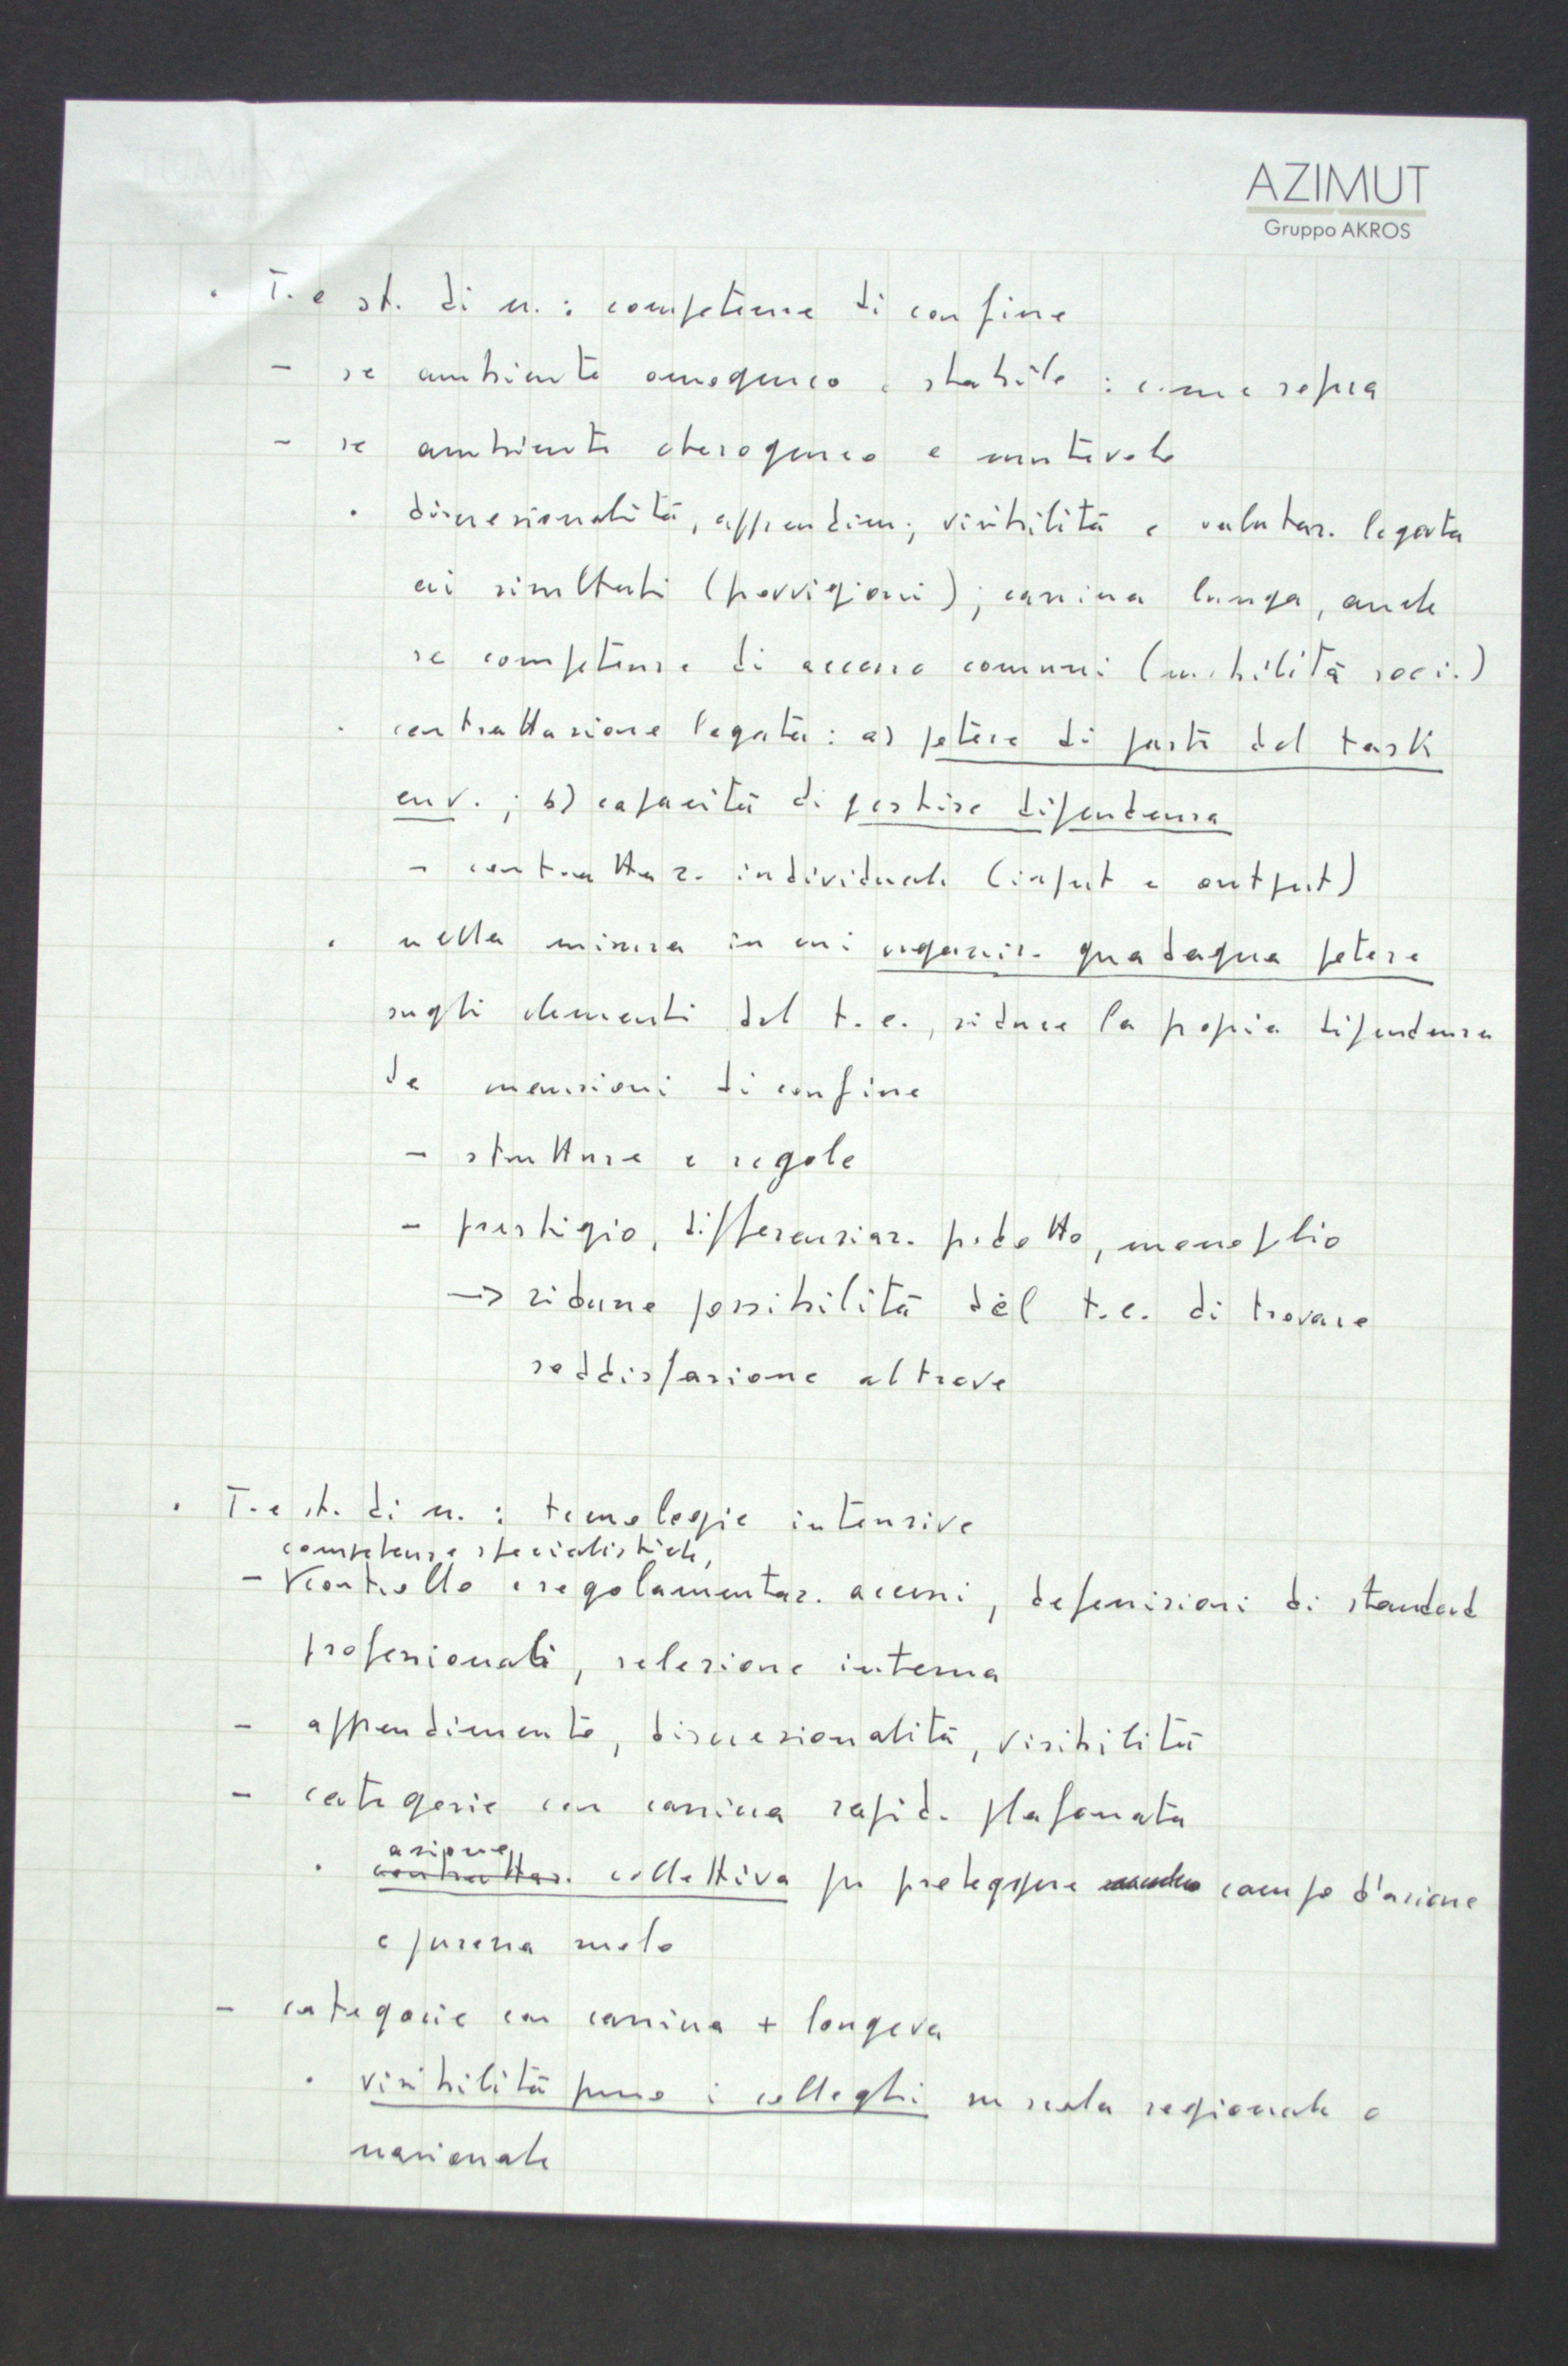 AZIMUT
Gruppo AKROS
· T. e st. di m. : competenze di confine
- se ambiente omogeneo e stabile : come sopra
- se ambiente eterogeneo e mutevole
· discrezionalità, apprendim., visibilità e valutaz. legata
ai risultati (provvigioni); carriera lunga, anche
se competenze di accesso comuni (mobilità soci.)
· contrattazione legata: a) potere di parti del task
env. ; b) capacità di gestire dipendenza
- contrattaz. individuale (input e output)
· nella misura in cui organiz. guadagna potere
sugli elementi del t.e., riduce la propria dipendenza
da mansioni di confine
- strutture e regole
- prestigio, differenziaz. prodotto, monopolio
-> ridurre possibilità del t.e. di trovare
soddisfazione altrove
· T. e st. di m. : tecnologie intensive
competenze specialistiche,
- controllo e regolamentaz. accessi, definizioni di standard
professionali, selezione interna
- apprendimento, discrezionalità, visibilità
- categorie con carriera rapid. plafonata
azione
· contrattaz. collettiva per proteggere campo d'azione
e purezza ruolo
- categorie con carriera + longeva
· visibilità presso i colleghi su scala regionale o
nazionale